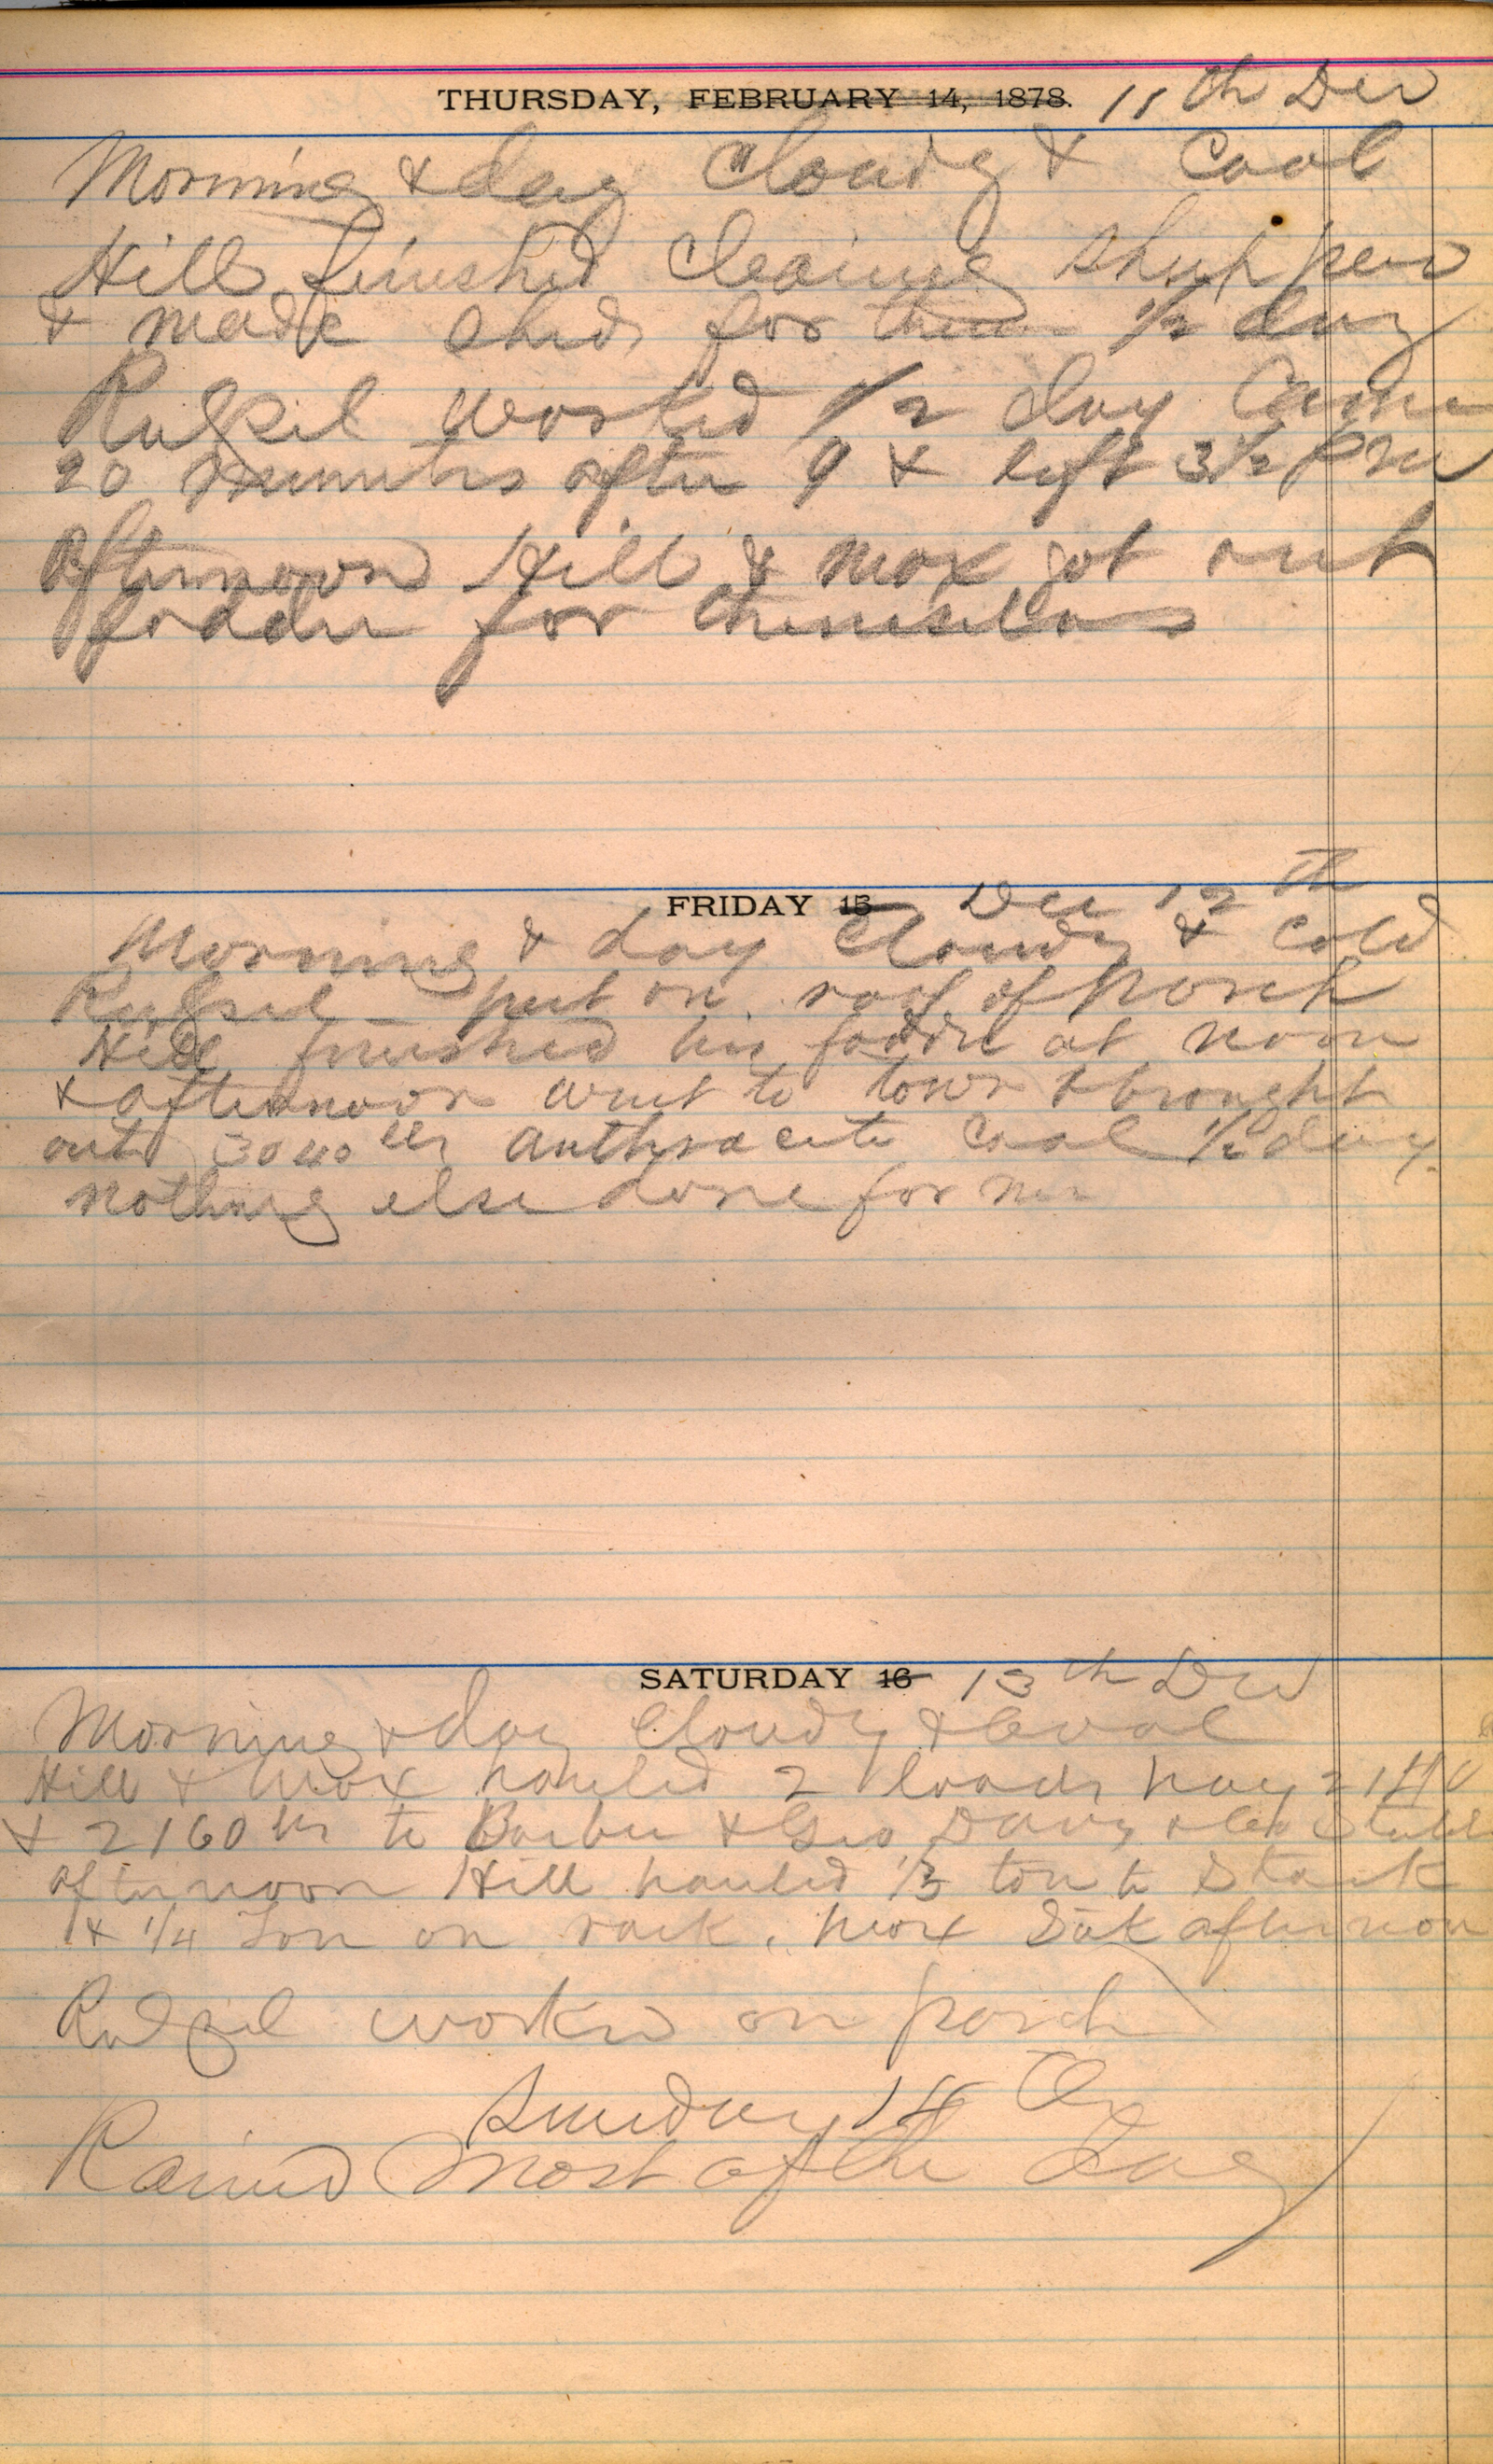 THURSDAY, FEBRUARY 14, 1878. 11th Dec
Morning & day Cloudy & Cool
Hill finished cleaning sheep pen
& made shed for them 1/2 day
worked 1/2 day Came
20 minutes after 9 & left 3 1/2 PM
Afternoon Hill & Mox got out
fodder for themselves
FRIDAY 15 Dec 12th
Morning & day Cloudy & Cold
put on roof of Porch
Hill finished his fodder at noon
& afternoon went to town & brought
out 3040 lbs anthracite Coal 1/2 day
nothing else done for me
SATURDAY 16 13th Dec
Morning & day Cloudy & Cool
Hill & Mox hauled 2 loads hay
& 2160 lbs to Barber & Geo Davy
afternoon Hill hauled 1/3 ton to Stack
& 1/4 Ton on rack. Mox afternoon
worked on porch
Sunday 14 Th
Rained Most of the Day